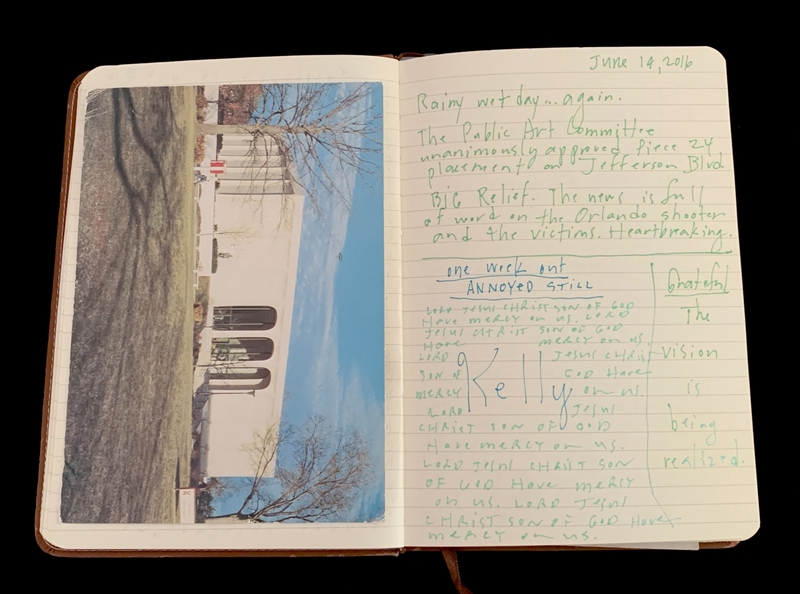 June 14, 2016
Rainy wet day... again.
The Public Art Committee
unanimously approved Piece 24
placement on Jefferson Blvd.
Big Relief. The news is full
of word on the Orlando shooter
and the victims. Heartbreaking.
one week out
ANNOYED STILL
LORD JESUS CHRIST SON OF GOD
Have mercy on us. LORD
Jesus CHRIST SON OF GOD
Have mercy on us.
LORD Jesus CHRIST
SON OF GOD Have
mercy on us.
Kelly
LORD Jesus
CHRIST SON OF GOD
Have mercy on us.
LORD JESUS CHRIST SON
OF GOD Have mercy
on us. LORD Jesus
CHRIST SON OF GOD Have
mercy on us.
Grateful
The
vision
is
being
realized.